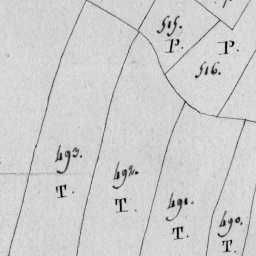 515.
P.
P.
516.
493.
T.
492.
T.
491.
T.
490.
T.